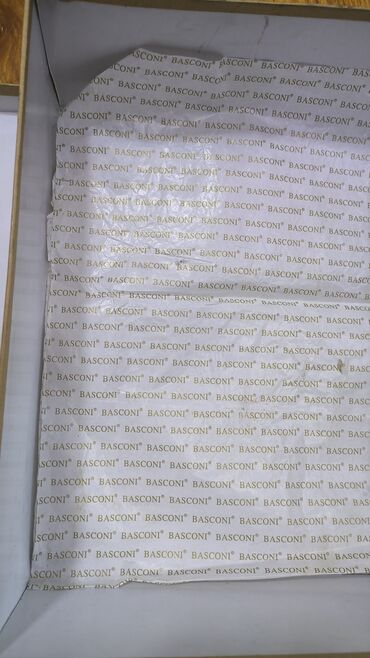 BASCONI® BASCONI® BASCONI®
BASCONI® BASCONI® BASCONI®
BASCONI® BASCONI® BASCONI® BASCONI®
BASCONI® BASCONI® BASCONI® BASCONI®
BASCONI® BASCONI® BASCONI® BASCONI®
BASCONI® BASCONI® BASCONI® BASCONI®
BASCONI® BASCONI® BASCONI® BASCONI®
BASCONI® BASCONI® BASCONI® BASCONI®
BASCONI® BASCONI® BASCONI® BASCONI®
BASCONI® BASCONI® BASCONI® BASCONI®
BASCONI® BASCONI® BASCONI® BASCONI®
BASCONI® BASCONI® BASCONI® BASCONI®
BASCONI® BASCONI® BASCONI® BASCONI®
BASCONI® BASCONI® BASCONI® BASCONI®
BASCONI® BASCONI® BASCONI® BASCONI®
BASCONI® BASCONI® BASCONI® BASCONI®
BASCONI® BASCONI® BASCONI® BASCONI®
BASCONI® BASCONI® BASCONI® BASCONI®
BASCONI® BASCONI® BASCONI® BASCONI®
BASCONI® BASCONI® BASCONI® BASCONI®
BASCONI® BASCONI® BASCONI® BASCONI®
BASCONI® BASCONI® BASCONI® BASCONI®
BASCONI® BASCONI® BASCONI® BASCONI®
BASCONI® BASCONI® BASCONI® BASCONI®
BASCONI® BASCONI® BASCONI® BASCONI®
BASCONI® BASCONI® BASCONI® BASCONI®
BASCONI® BASCONI® BASCONI® BASCONI®
BASCONI® BASCONI® BASCONI® BASCONI®
BASCONI® BASCONI® BASCONI® BASCONI®